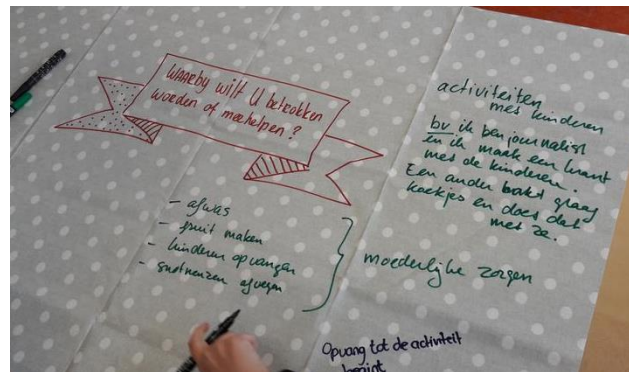 WAARBIJ wilt U betrokken
worden of meehelpen?
- afwas
- fruit maken
- kinderen opvangen
- snotneuzen afvegen
moederlijke zorgen
activiteiten
met kinderen
bv ik ben journalist
en ik maak een krant
met de kinderen.
Een ander bakt graag
koekjes en doet dat
met ze.
Opvang tot de activiteit
begint